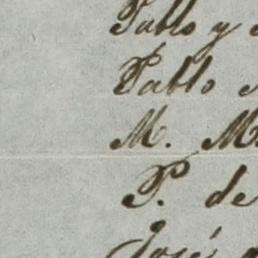 Pablo y
Pablo
M. M
P. de
José